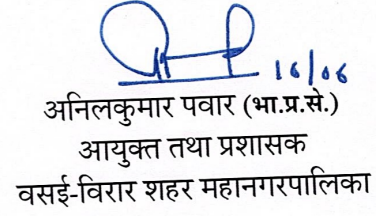 16/06
अनिलकुमार पवार (भा.प्र.से.)
आयुक्त तथा प्रशासक
वसई-विरार शहर महानगरपालिका